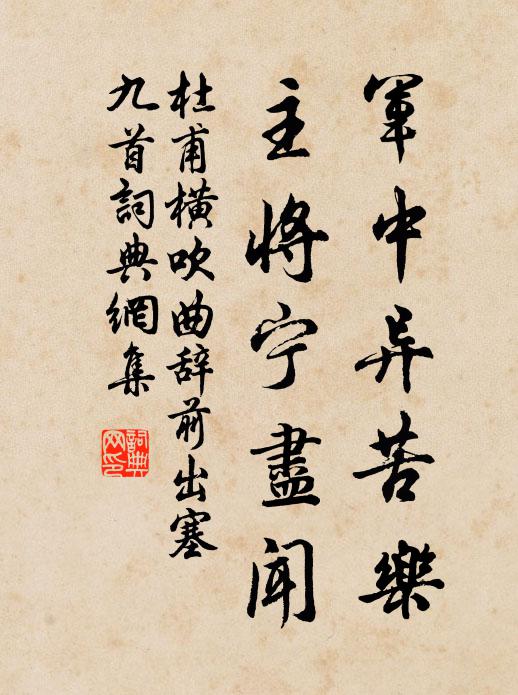 軍中异苦樂
主将宁盡聞
杜甫横吹曲辞前出塞
九首詞典網集
詞典网印